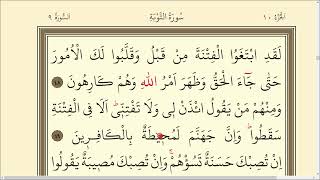 الجزء ١٠ سُورَةُ التَّوْبَةِ السُّورَة ٩
لَقَدِ ابْتَغَوُا الْفِتْنَةَ مِنْ قَبْلُ وَقَلَّبُوا لَكَ الْاُمُورَ
حَتّٰى جَٓاءَ الْحَقُّ وَظَهَرَ اَمْرُ اللّٰهِ وَهُمْ كَارِهُونَ ٤٨
وَمِنْهُمْ مَنْ يَقُولُ ائْذَنْ لٖى وَلَا تَفْتِنّٖى اَلَا فِى الْفِتْنَةِ
سَقَطُوا وَاِنَّ جَهَنَّمَ لَمُحٖيطَةٌ بِالْكَافِرٖينَ ٤٩
اِنْ تُصِبْكَ حَسَنَةٌ تَسُؤْهُمْ وَاِنْ تُصِبْكَ مُصٖيبَةٌ يَقُولُوا